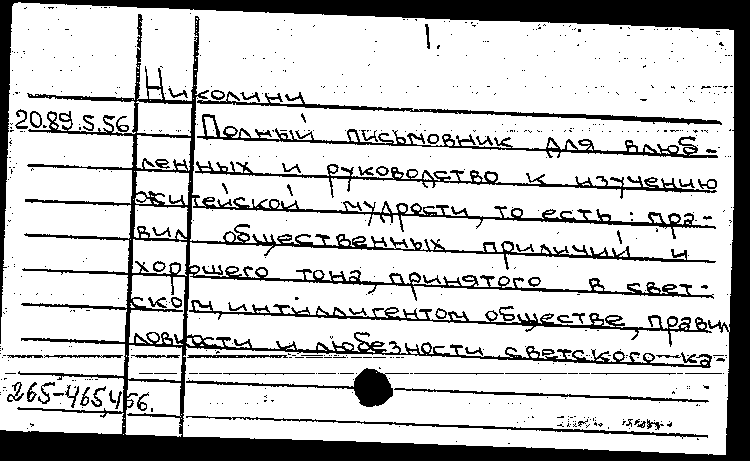 1.
Николини
20.89.5.56 Полный письмовник для влюб-
ленных и руководство к изучению
житейской мудрости, то есть: пра-
вил общественных приличий и
хорошего тона, принятого в свет-
ском, интиллигентом обществе, правил
ловкости и любезности светского ка-
265-465,456.